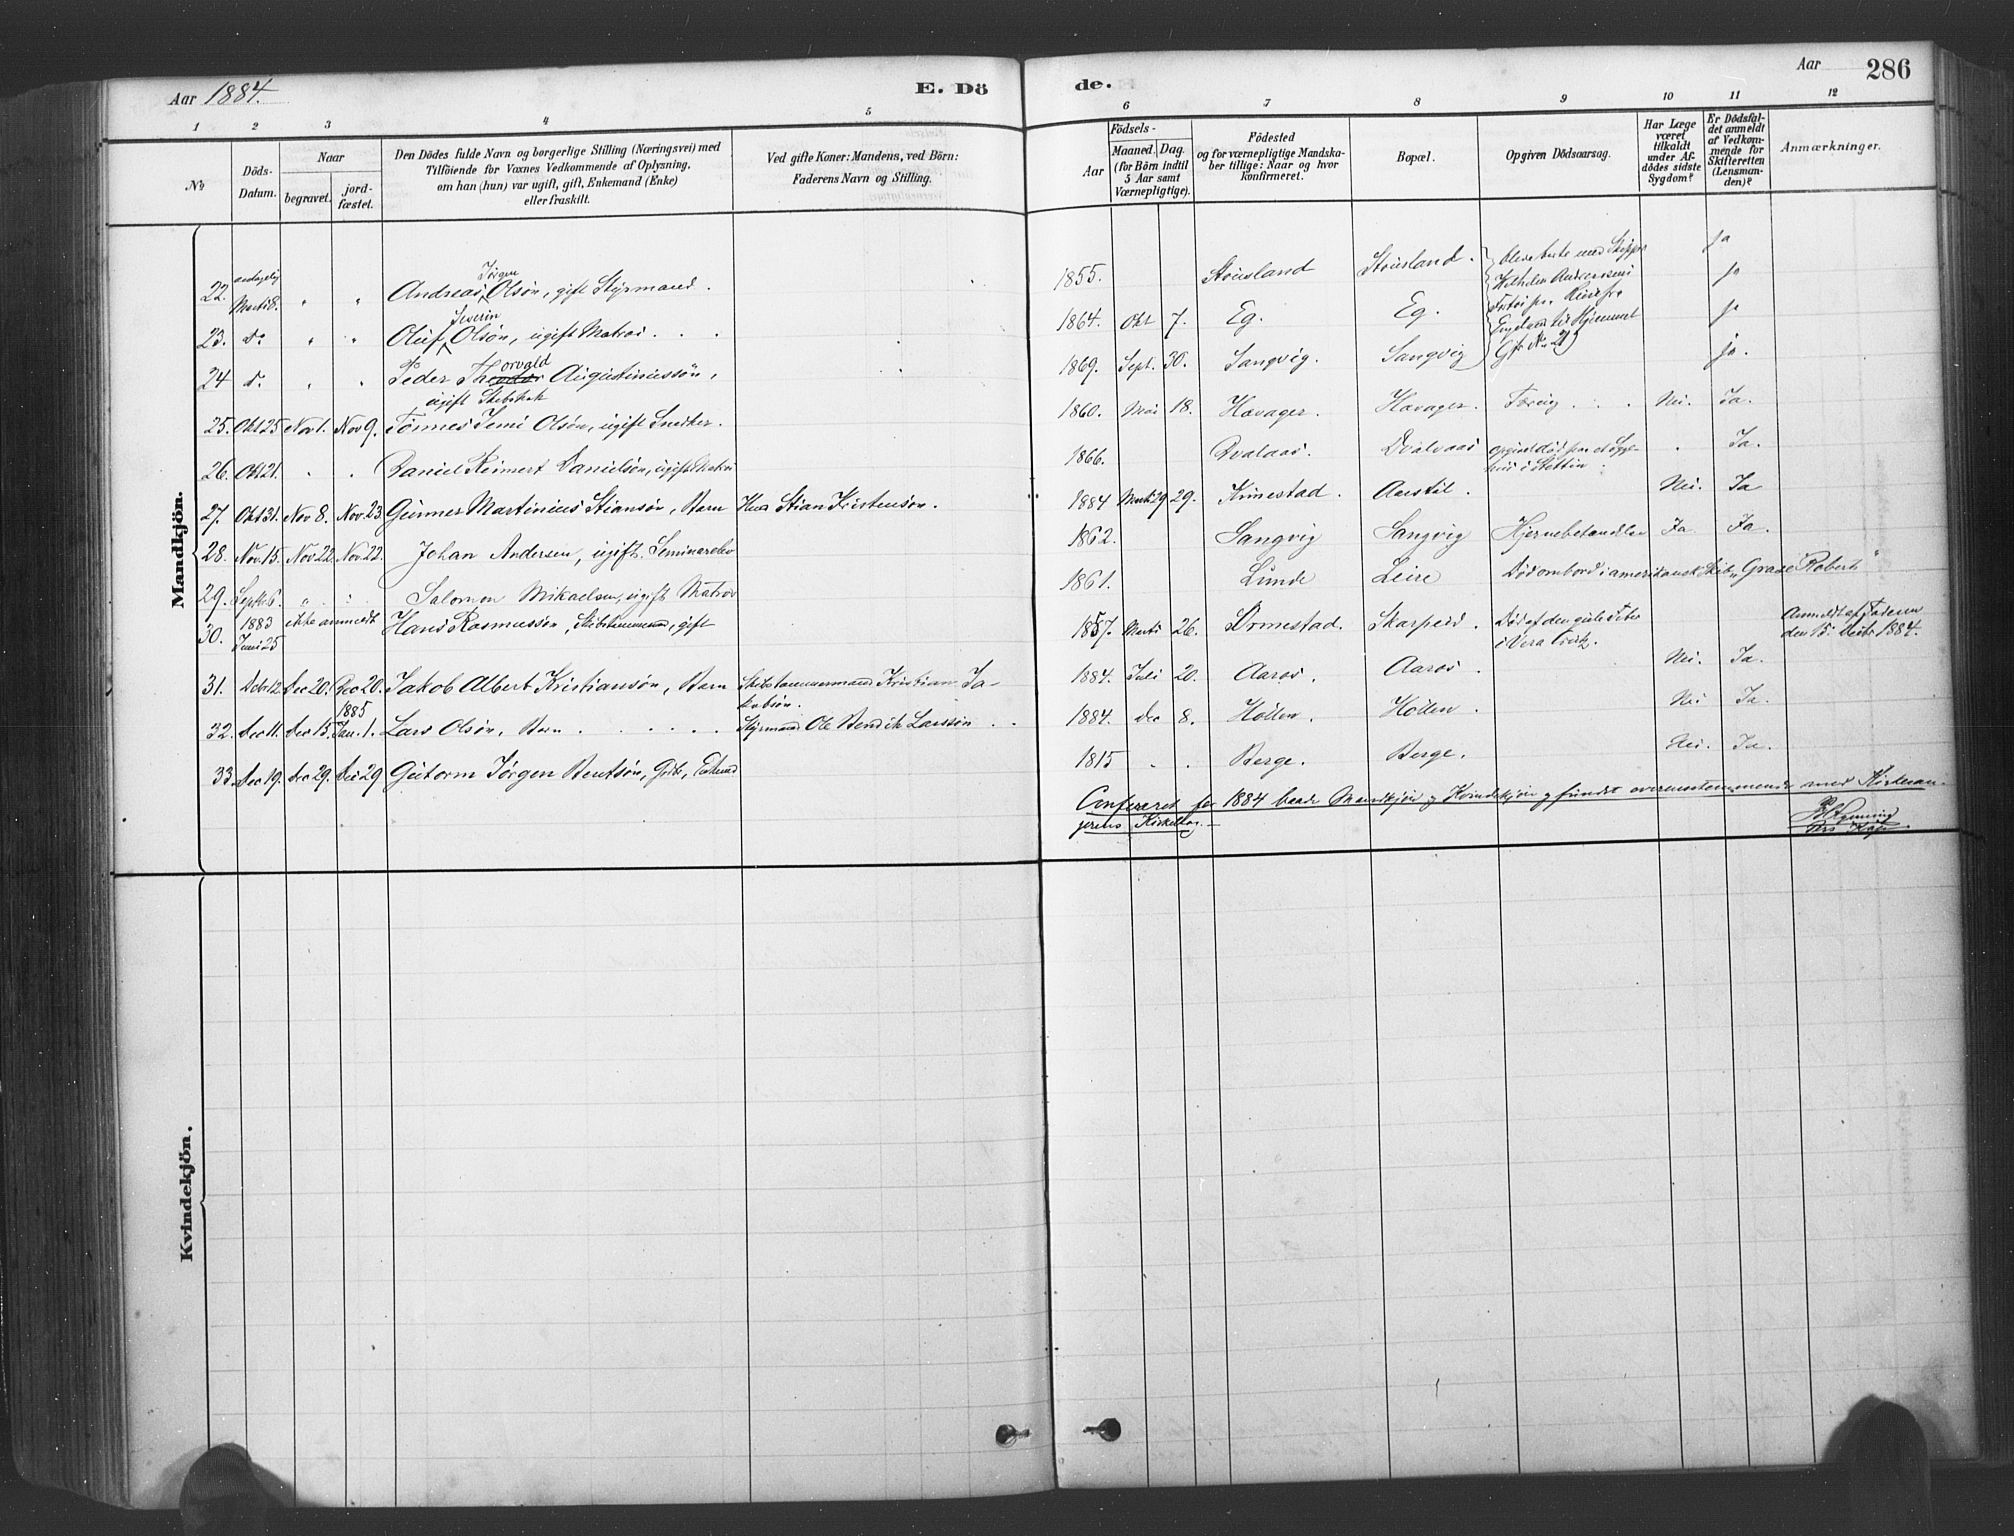 Aar 1884. E. Dö de. Aar 286
1 2 3 4 5 6 7 8 9 10 11 12
No
Döds-
Datum.
Naar
begravet.
jord-
fæstet.
Den Dödes fulde Navn og borgerlige Stilling (Næringsvei) med
Tilföiende for Voxnes Vedkommende af Oplysning,
om han (hun) var ugift, gift, Enkemand (Enke)
eller fraskilt.
Ved gifte Koner: Mandens, ved Börn:
Faderens Navn og Stilling.
Födsels-
Aar
Maaned. Dag.
(for Börn indtil
5 Aar samt
Værnepligtige).
Födested
og for værnepligtige Mandska-
ber tillige: Naar og hvor
konfirmeret.
Bopæl.
Opgiven Dödsaarsag.
Har Læge
været
tilkaldt
under Af-
dödes sidste
Sygdom?
Er Dödsfal-
det anmeldt
af Vedkom-
mende for
Skifteretten
(Lensman-
den)?
Anmærkninger.
Mandkjön.
22. antagelig Marts 8. " " Andreas Jørgen Olsøn, gift Styrmand. 1855. Stousland Stousland. ja
23. do " " Oluf Severin Olsøn, ugift Matros . . . 1864. Okt 7. Eg. Eg. ja
24 do " " Peder Thorvald Augustinussøn, 1869. Sept. 30. Sangvig. Sangvig ja
ugift
blev borte med Skipper
Wilhelm Andreassens
Engeland til Hjemmet
ja.
25. Okt 25 Nov 1. Nov 9. Tønnes Olsøn, ugift Snedker. 1860. Mai 18. Havager. Havager. Tæring . . . Nei. Ja.
26. Okt 21. " " Daniel Reimert Danielsøn, ugift Matros 1866. Qvalaas. Dvalaas opgivet død paa et Syge- " Ja.
hus i Stettin.
27. Okt 31. Nov 8. Nov. 23 Gunner Martinius Stiansøn, Barn Stian Kristensøn. 1884 Marts 29 29. Kimestad. Aarstøl. Nei. Ja
28. Nov. 15. Nov. 22. Nov. 22. Johan Andersen, ugift. Seminarelev 1862. Sangvig Sangvig Ja. Ja.
29. Septb 6. " " Salomon Mikaelsen, ugift Matros 1861. Lunde Leire Død ombord i amerikansk Skib "Grace Roberts"
30. 1883 Juni 25 ikke anmeldt Hans Rasmussøn, Skibstømmermand, gift 1857. Marts 26. Ormestad. Skarpeid. Død af den gule Feber
i Vera Cruz.
Anmeldt af Faderen
den 15. Decbr 1884.
31. Decbr 12. Dec 20. Dec 20. Jakob Albert Kristiansøn, Barn Skibstømmermand Kristian Ja- 1884. Juli 20. Aaros. Aaros. Nei. Ja.
kobsøn.
32. Dec 11. Dec 15. 1885 Jan. 1. Lars Olsøn, Barn . . . . . . Styrmand Ole Bendik Larssøn . . 1884. Dec 8. Høllen. Høllen. Nei Ja.
33. Dec 19. Dec 29. Dec 29 Gutorm Jørgen Bentsøn, Enkemd 1815 " " Berge. Berge. Nei. Ja.
Confereret for 1884 baade Mandkjøn og Kvindekjøn og fundet overensstemmende med Kirkesan-
gerens Kirkebog.—
Kvindekjön.